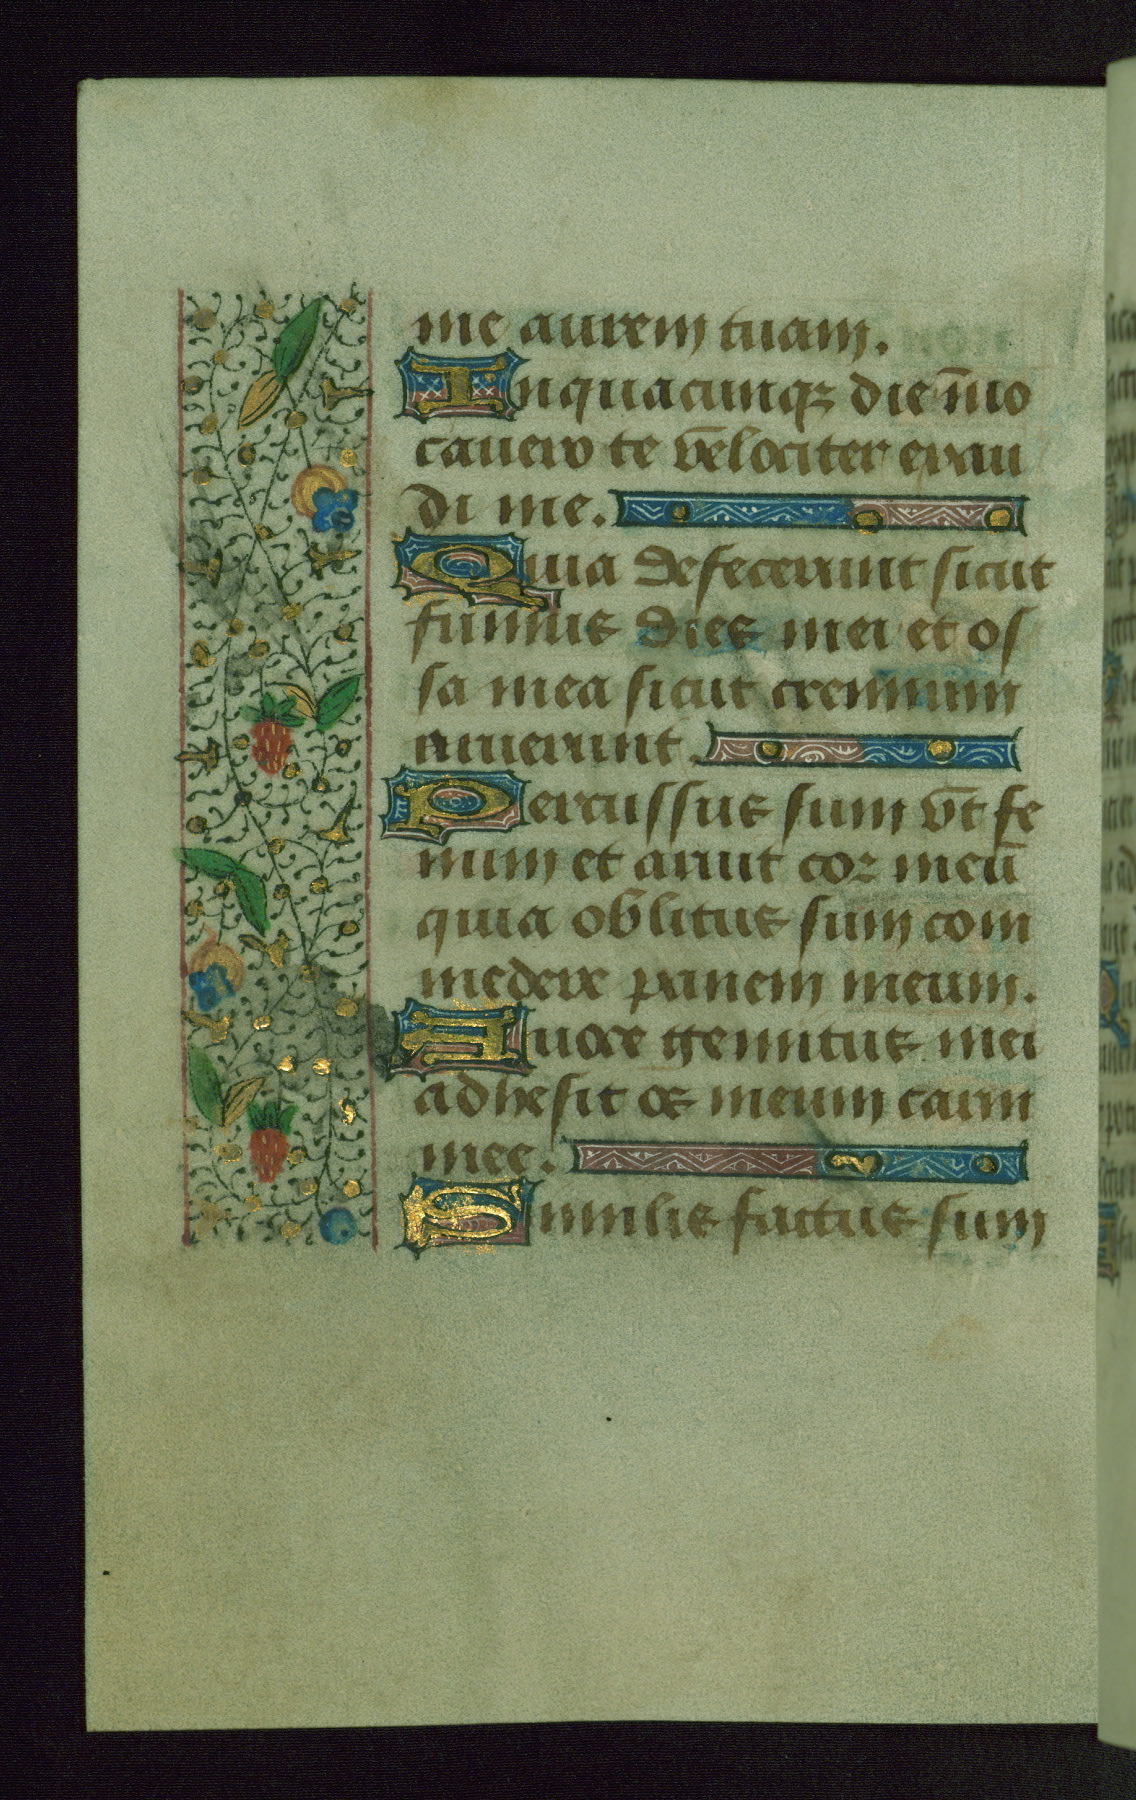 me aurem tuam.
In quacumqꝫ die īuo
cauero te velociter exau
di me.
Quia defecerunt sicut
fumus dies mei et os
sa mea sicut cremium
aruerunt.
Percussus sum vt fe
num et aruit cor meū
quia oblitus sum com
medere panem meum.
A uoce gemitus mei
adhesit os meum carni
mee.
Similis factus sum